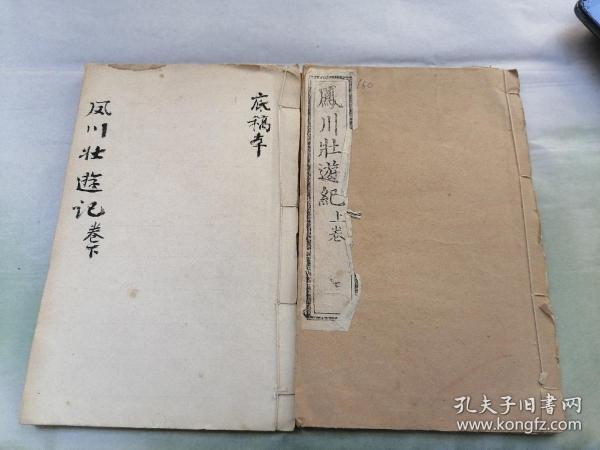 鳳川壯遊紀上卷
160
底稿本
凤川壮遊记卷下
孔夫子旧书网
www.kongfz.com